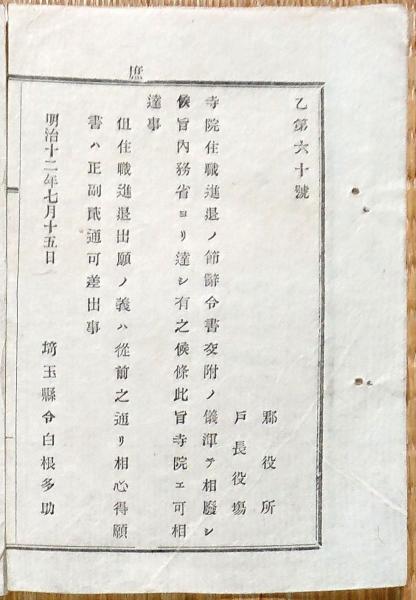 庶
乙第六十號
郡役所
戸長役場
寺院住職進退ノ節辭令書交附ノ儀渾テ相廢シ
候旨內務省ヨリ達シ有之候條此旨寺院エ可相
達事
但住職進退出願ノ義ハ從前之通リ相心得願
書ハ正副貳通可差出事
明治十二年七月十五日
埼玉縣令白根多助